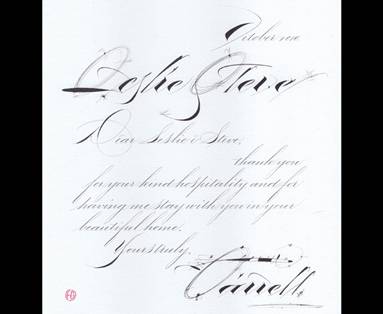 October
Leslie Steve
Dear Leslie & Steve,
thank you
for your kind hospitality and for
having me stay with you in your
beautiful home.
Yours truly,